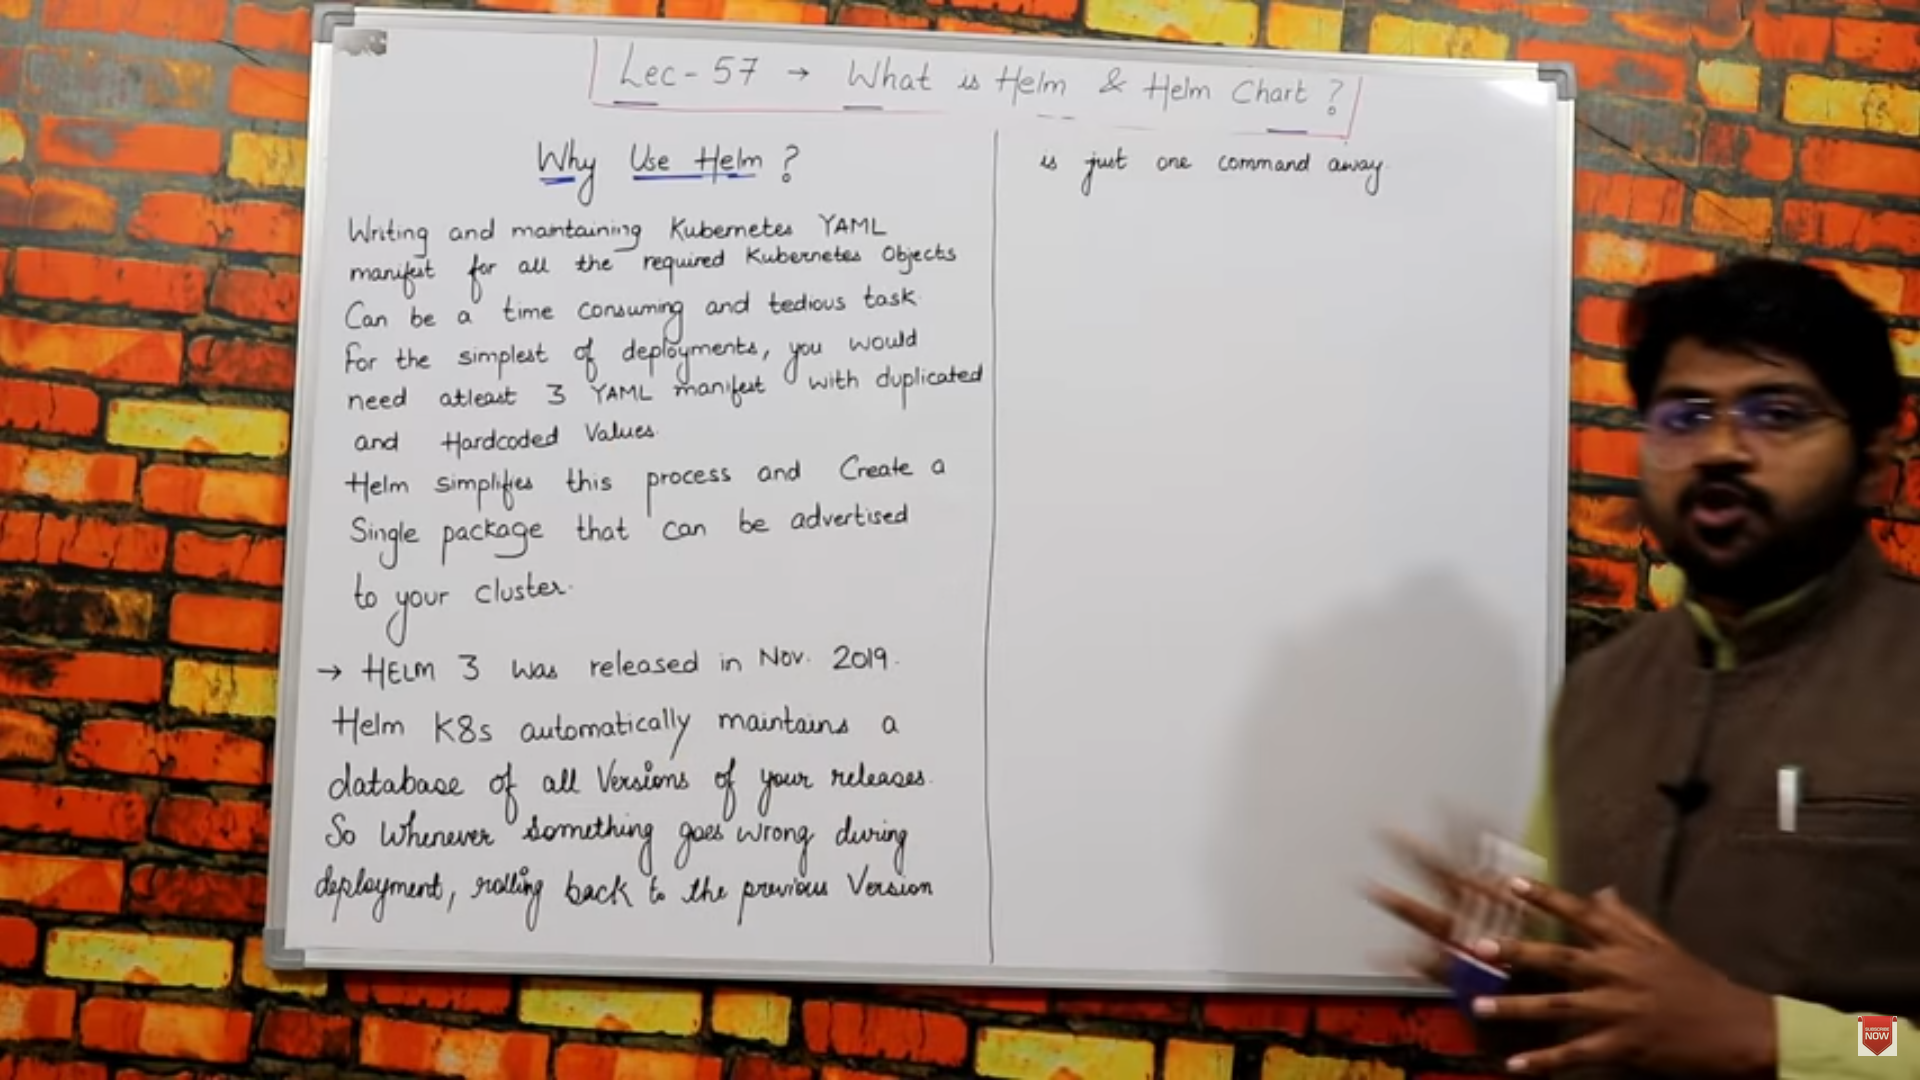 Lec-57 → What is Helm & Helm Chart ?
Why Use Helm ?
Writing and maintaining Kubernetes YAML
manifest for all the required Kubernetes Objects
Can be a time consuming and tedious task.
For the simplest of deployments, you would
need atleast 3 YAML manifest with duplicated
and Hardcoded Values.
Helm simplifies this process and Create a
Single package that can be advertised
to your cluster.
→ HELM 3 was released in Nov. 2019.
Helm K8s automatically maintains a
database of all Versions of your releases.
So Whenever something goes wrong during
deployment, rolling back to the previous Version
is just one command away.
SUBSCRIBE
NOW